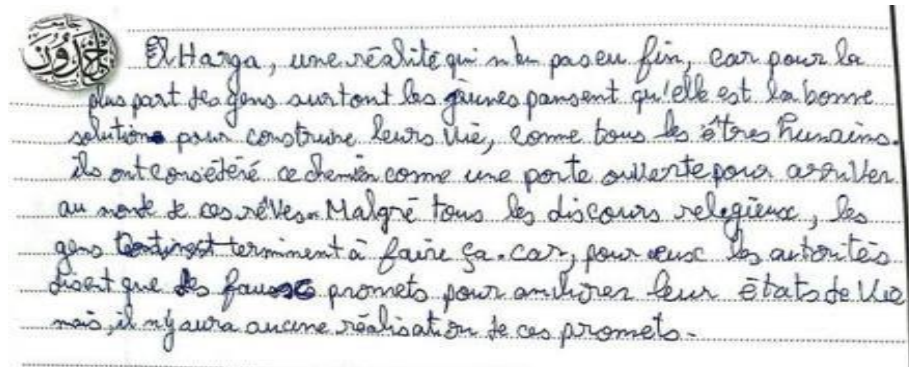 جامعة
ابن خلدون
El Harga, une réalité qui n'en pas eu fin, car pour la
plus part des gens surtout les jeunes pansent qu'elle est la bonne
solution pour construire leurs vie, come tous les êtres humains.
ils ont consédéré ce chemin come une porte ouverte pour arriver
au monde de ces rêves. Malgré tous les discours relegieux, les
gens terminent à faire ça. car, pour eux les autorités
disent que des fausse promets pour amilirer leur états de vie
mais, il n'y aura aucune réalisation de ces promets.